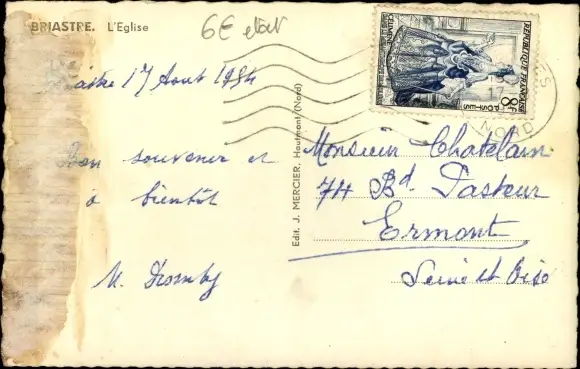 BRIASTRE. L'Eglise
6€ etat
17 Aout 1954
Bon souvenir et
à bientôt
Edit. J. MERCIER, Hautmont (Nord)
REPUBLIQUE FRANÇAISE
8F
POSTES
CELIMENE
17
NORD
Monsieur Chatelain
74 Bd Pasteur
Ermont
Seine et Oise